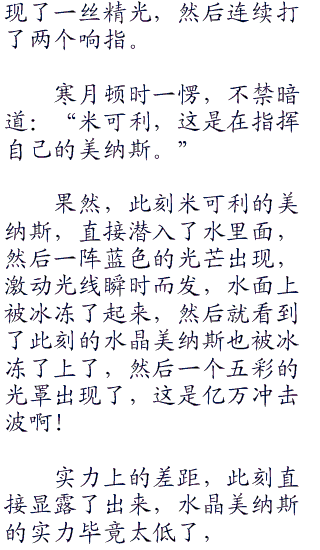 现了一丝精光，然后连续打
了两个响指。
寒月顿时一愣，不禁暗
道：“米可利，这是在指挥
自己的美纳斯。”
果然，此刻米可利的美
纳斯，直接潜入了水里面，
然后一阵蓝色的光芒出现，
激动光线瞬时而发，水面上
被冰冻了起来，然后就看到
了此刻的水晶美纳斯也被冰
冻了上了，然后一个五彩的
光罩出现了，这是亿万冲击
波啊！
实力上的差距，此刻直
接显露了出来，水晶美纳斯
的实力毕竟太低了，